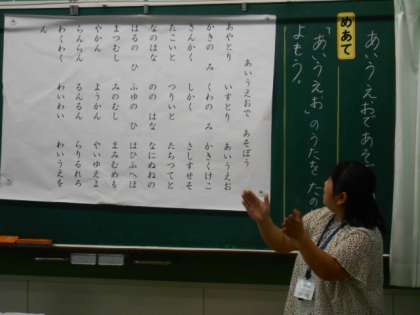 あいうえおであそ
めあて
「あ、い、う、え、お」のうたをたの
よもう。
あいうえおで　あそぼう
あやとり　いすとり　あいうえお
かきの　み　くわの　み　かきくけこ
さんかく　しかく　さしすせそ
たこいと　つりいと　たちつてと
なのはな　のの　はな　なにぬねの
はるの　ひ　ふゆの　ひ　はひふへほ
まつむし　みのむし　まみむめも
やかん　ようかん　やいゆえよ
らんらん　るんるん　らりるれろ
わくわく　わいわい　わいうえを
ん